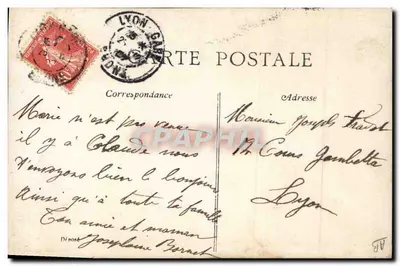 LYON-GARE
RHONE
CARTE POSTALE
Correspondance
Adresse
Marie n'est pas venue
il y a Claude nous
t'envoyons bien le bonjour
Ainsi qu'à toute ta famille
Ton amie et maman
Josephine Bornet
Monsieur Joseph
Cours Gambetta
Lyon
CPHPHIL